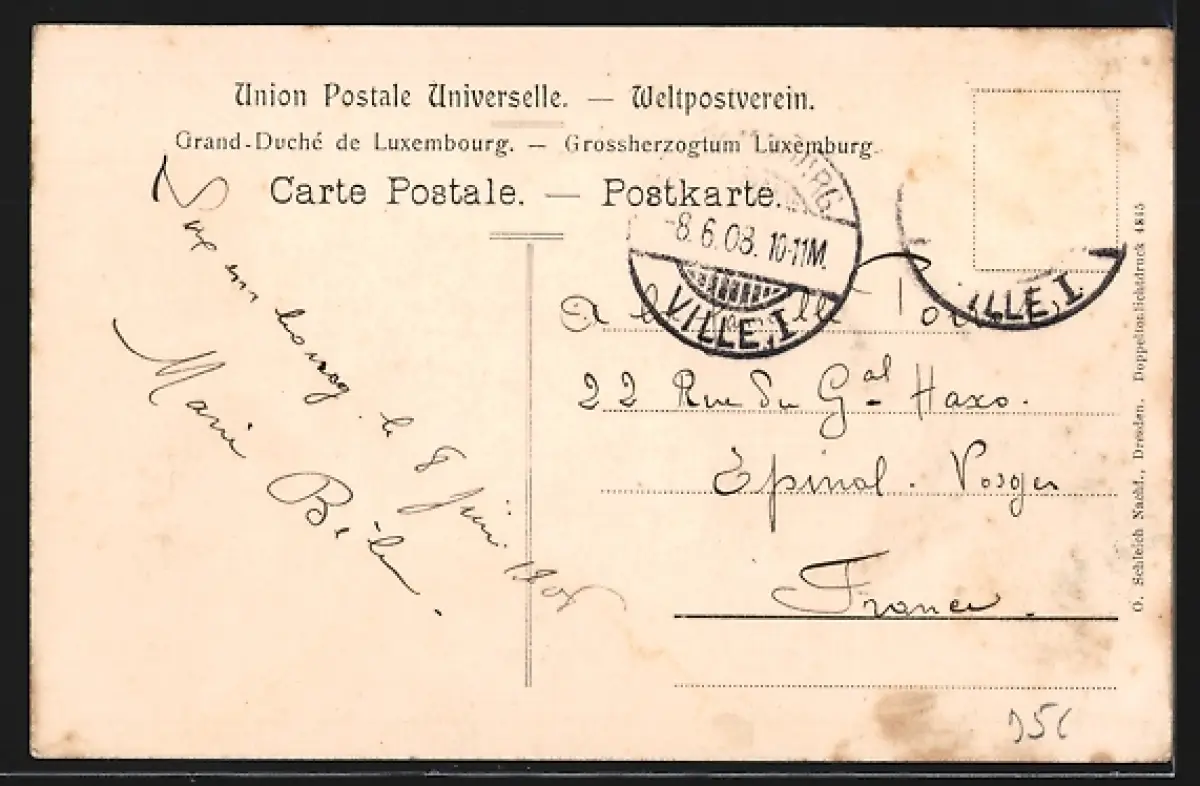 Union Postale Universelle. — Weltpostverein.
Grand-Duché de Luxembourg. — Grossherzogtum Luxemburg.
Carte Postale. — Postkarte.
-8.6.08. 10-11M.
VILLE, I
ILLE, I
le 8 Juin 1908
Marie
A
22 Rue du Gal Haxo.
Epinal. Vosges
France.
O. Schleich Nachf., Dresden. Doppeltonlichtdruck 4845